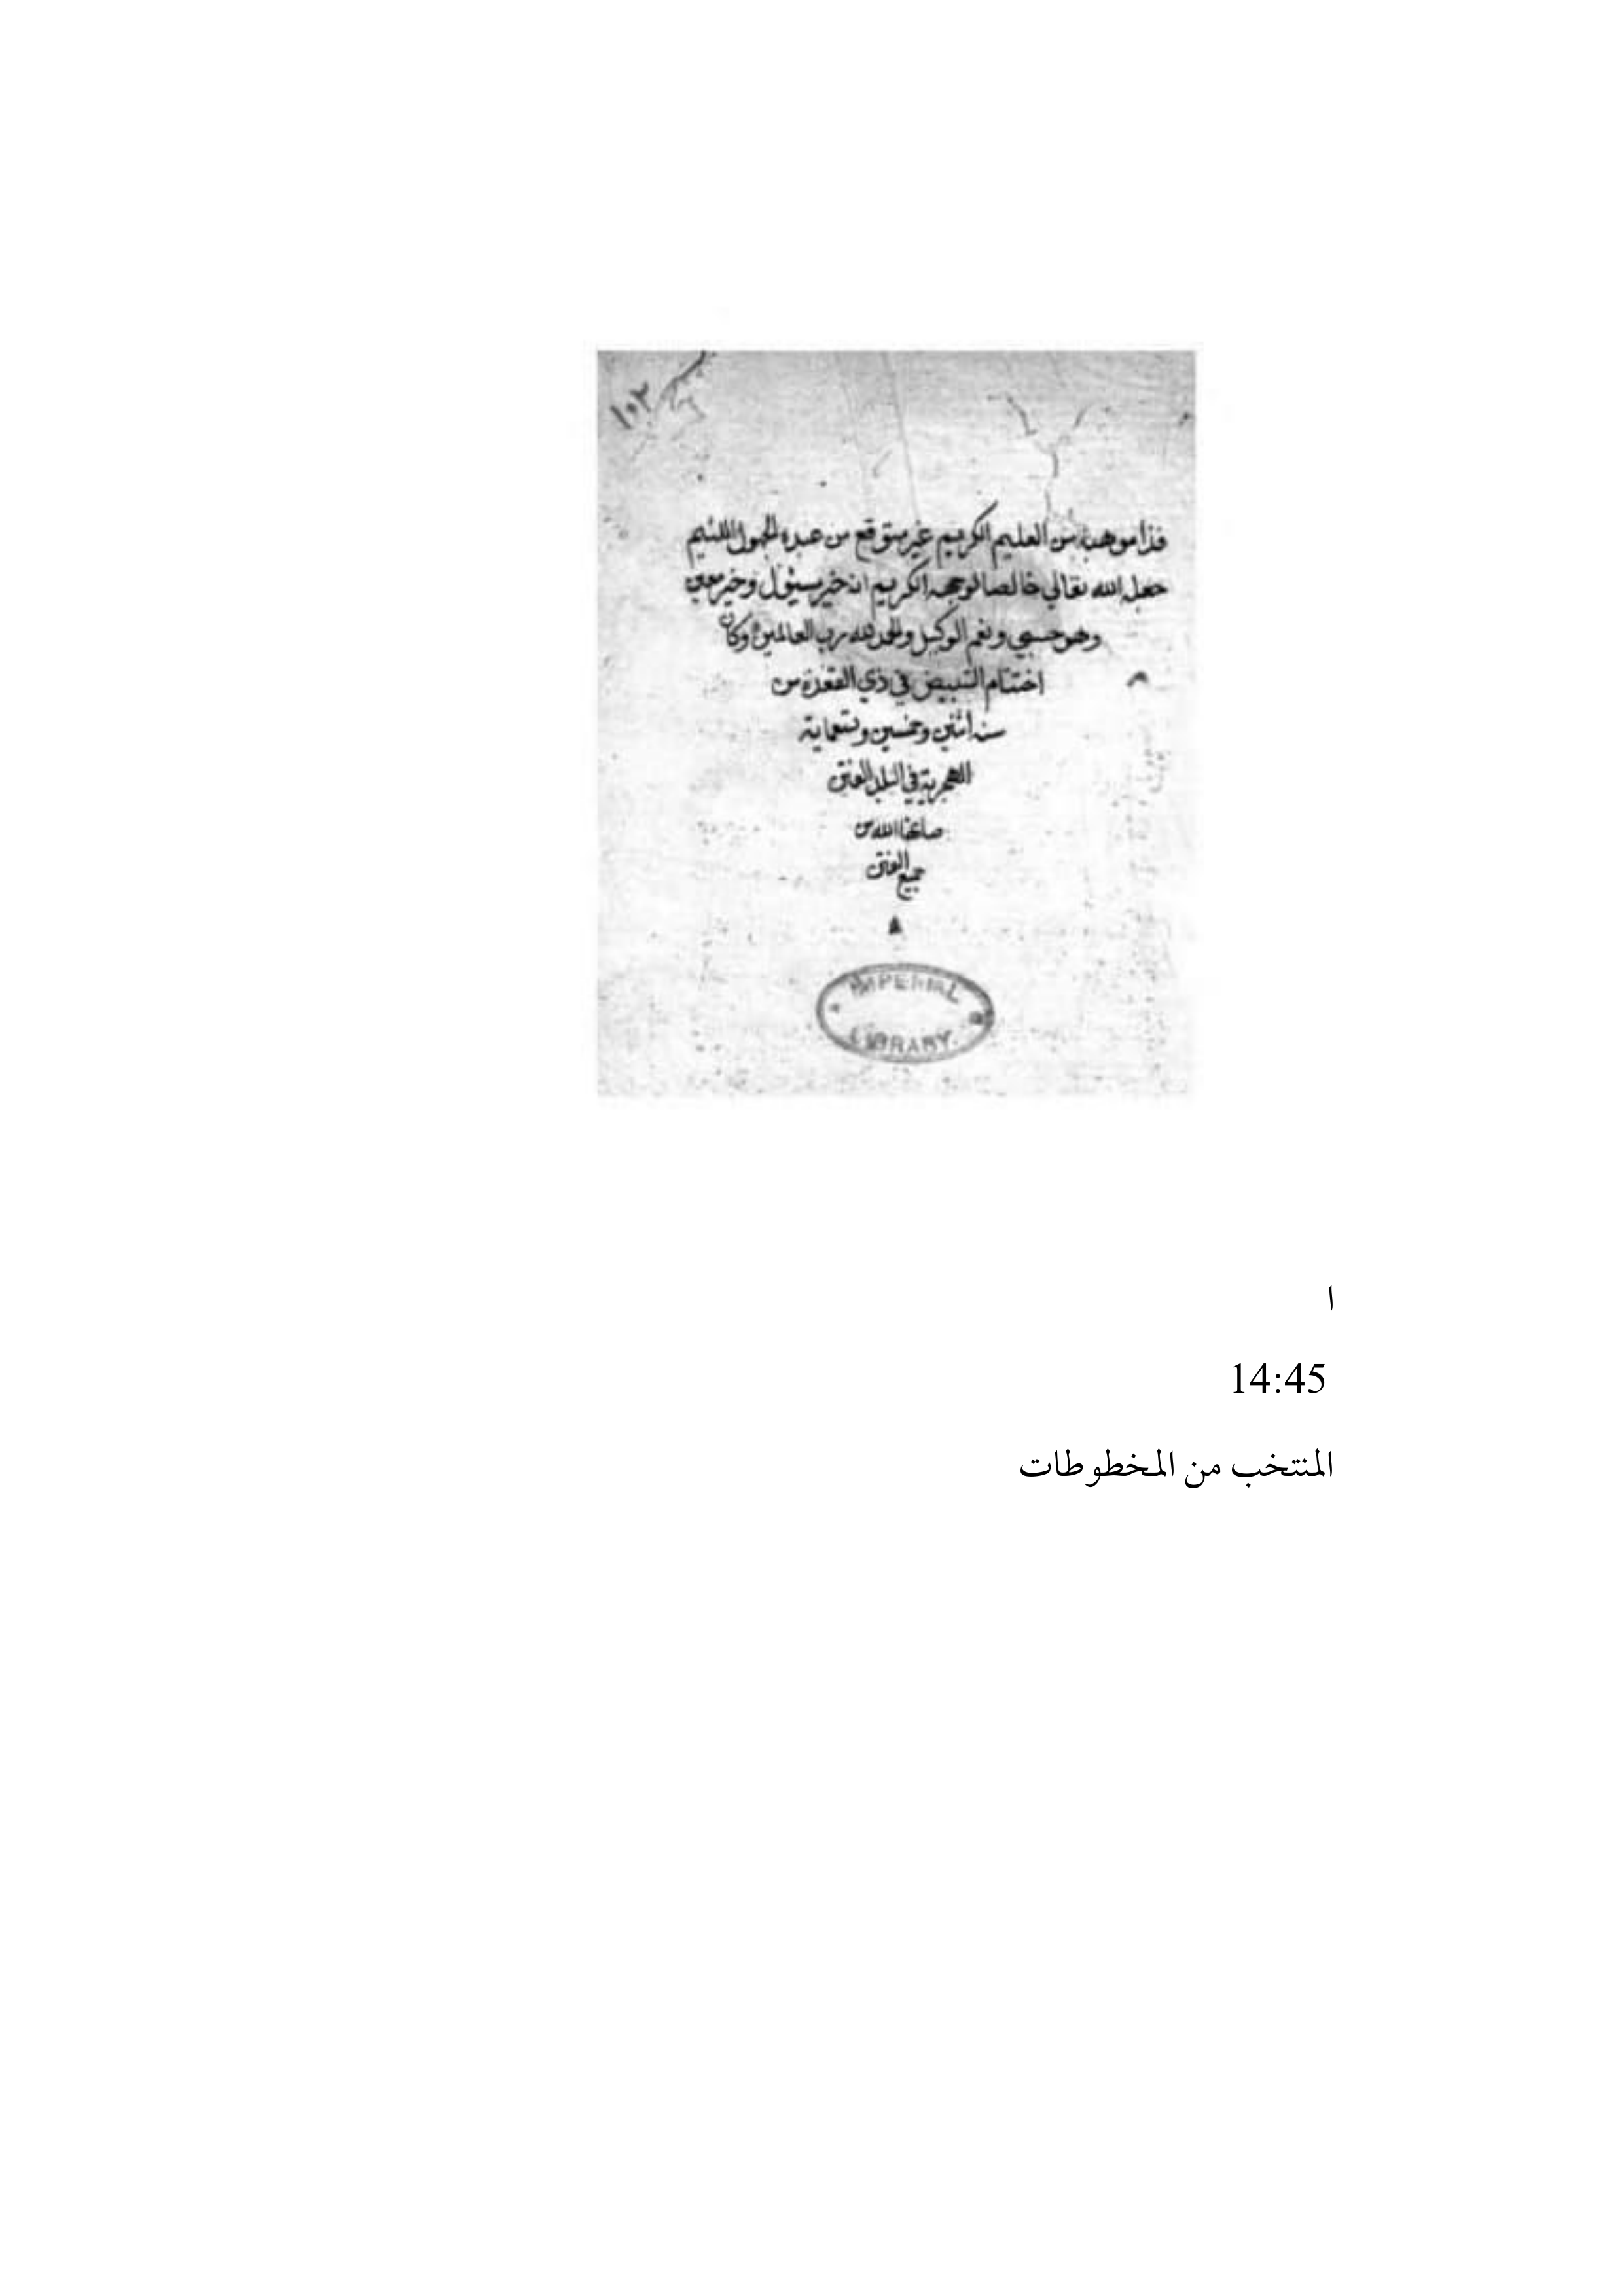 ١٠٢
فذا موهبة من العليم الكريم غير متوقع من عبده الجهول اللئيم
جعله الله تعالي خالصا لوجهه الكريم انه خير مسئول وخير معين
وهو حسبي ونعم الوكيل والحمد لله رب العالمين وكان
اختتام التبييض في ذي القعدة من
سنه اثنين وخمسين وتسعماية
الهجرية في البلد
صانها الله من
جميع الفتن
IMPERIAL
LIBRARY.
ا
14:45
المنتخب من المخطوطات